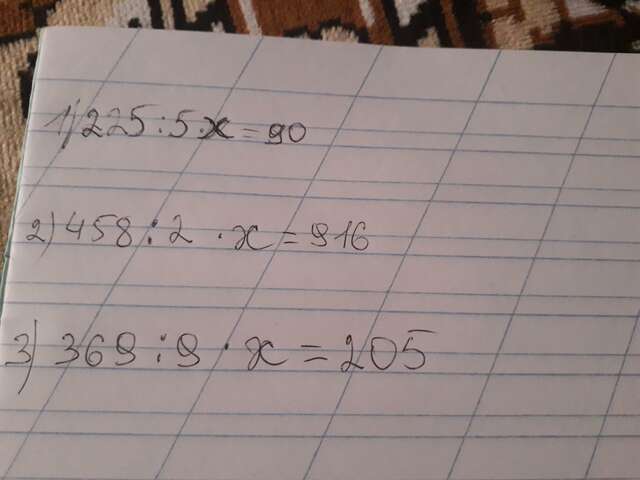 1) 225:5·x=90
2) 458:2·x=916
3) 369:9·x=205